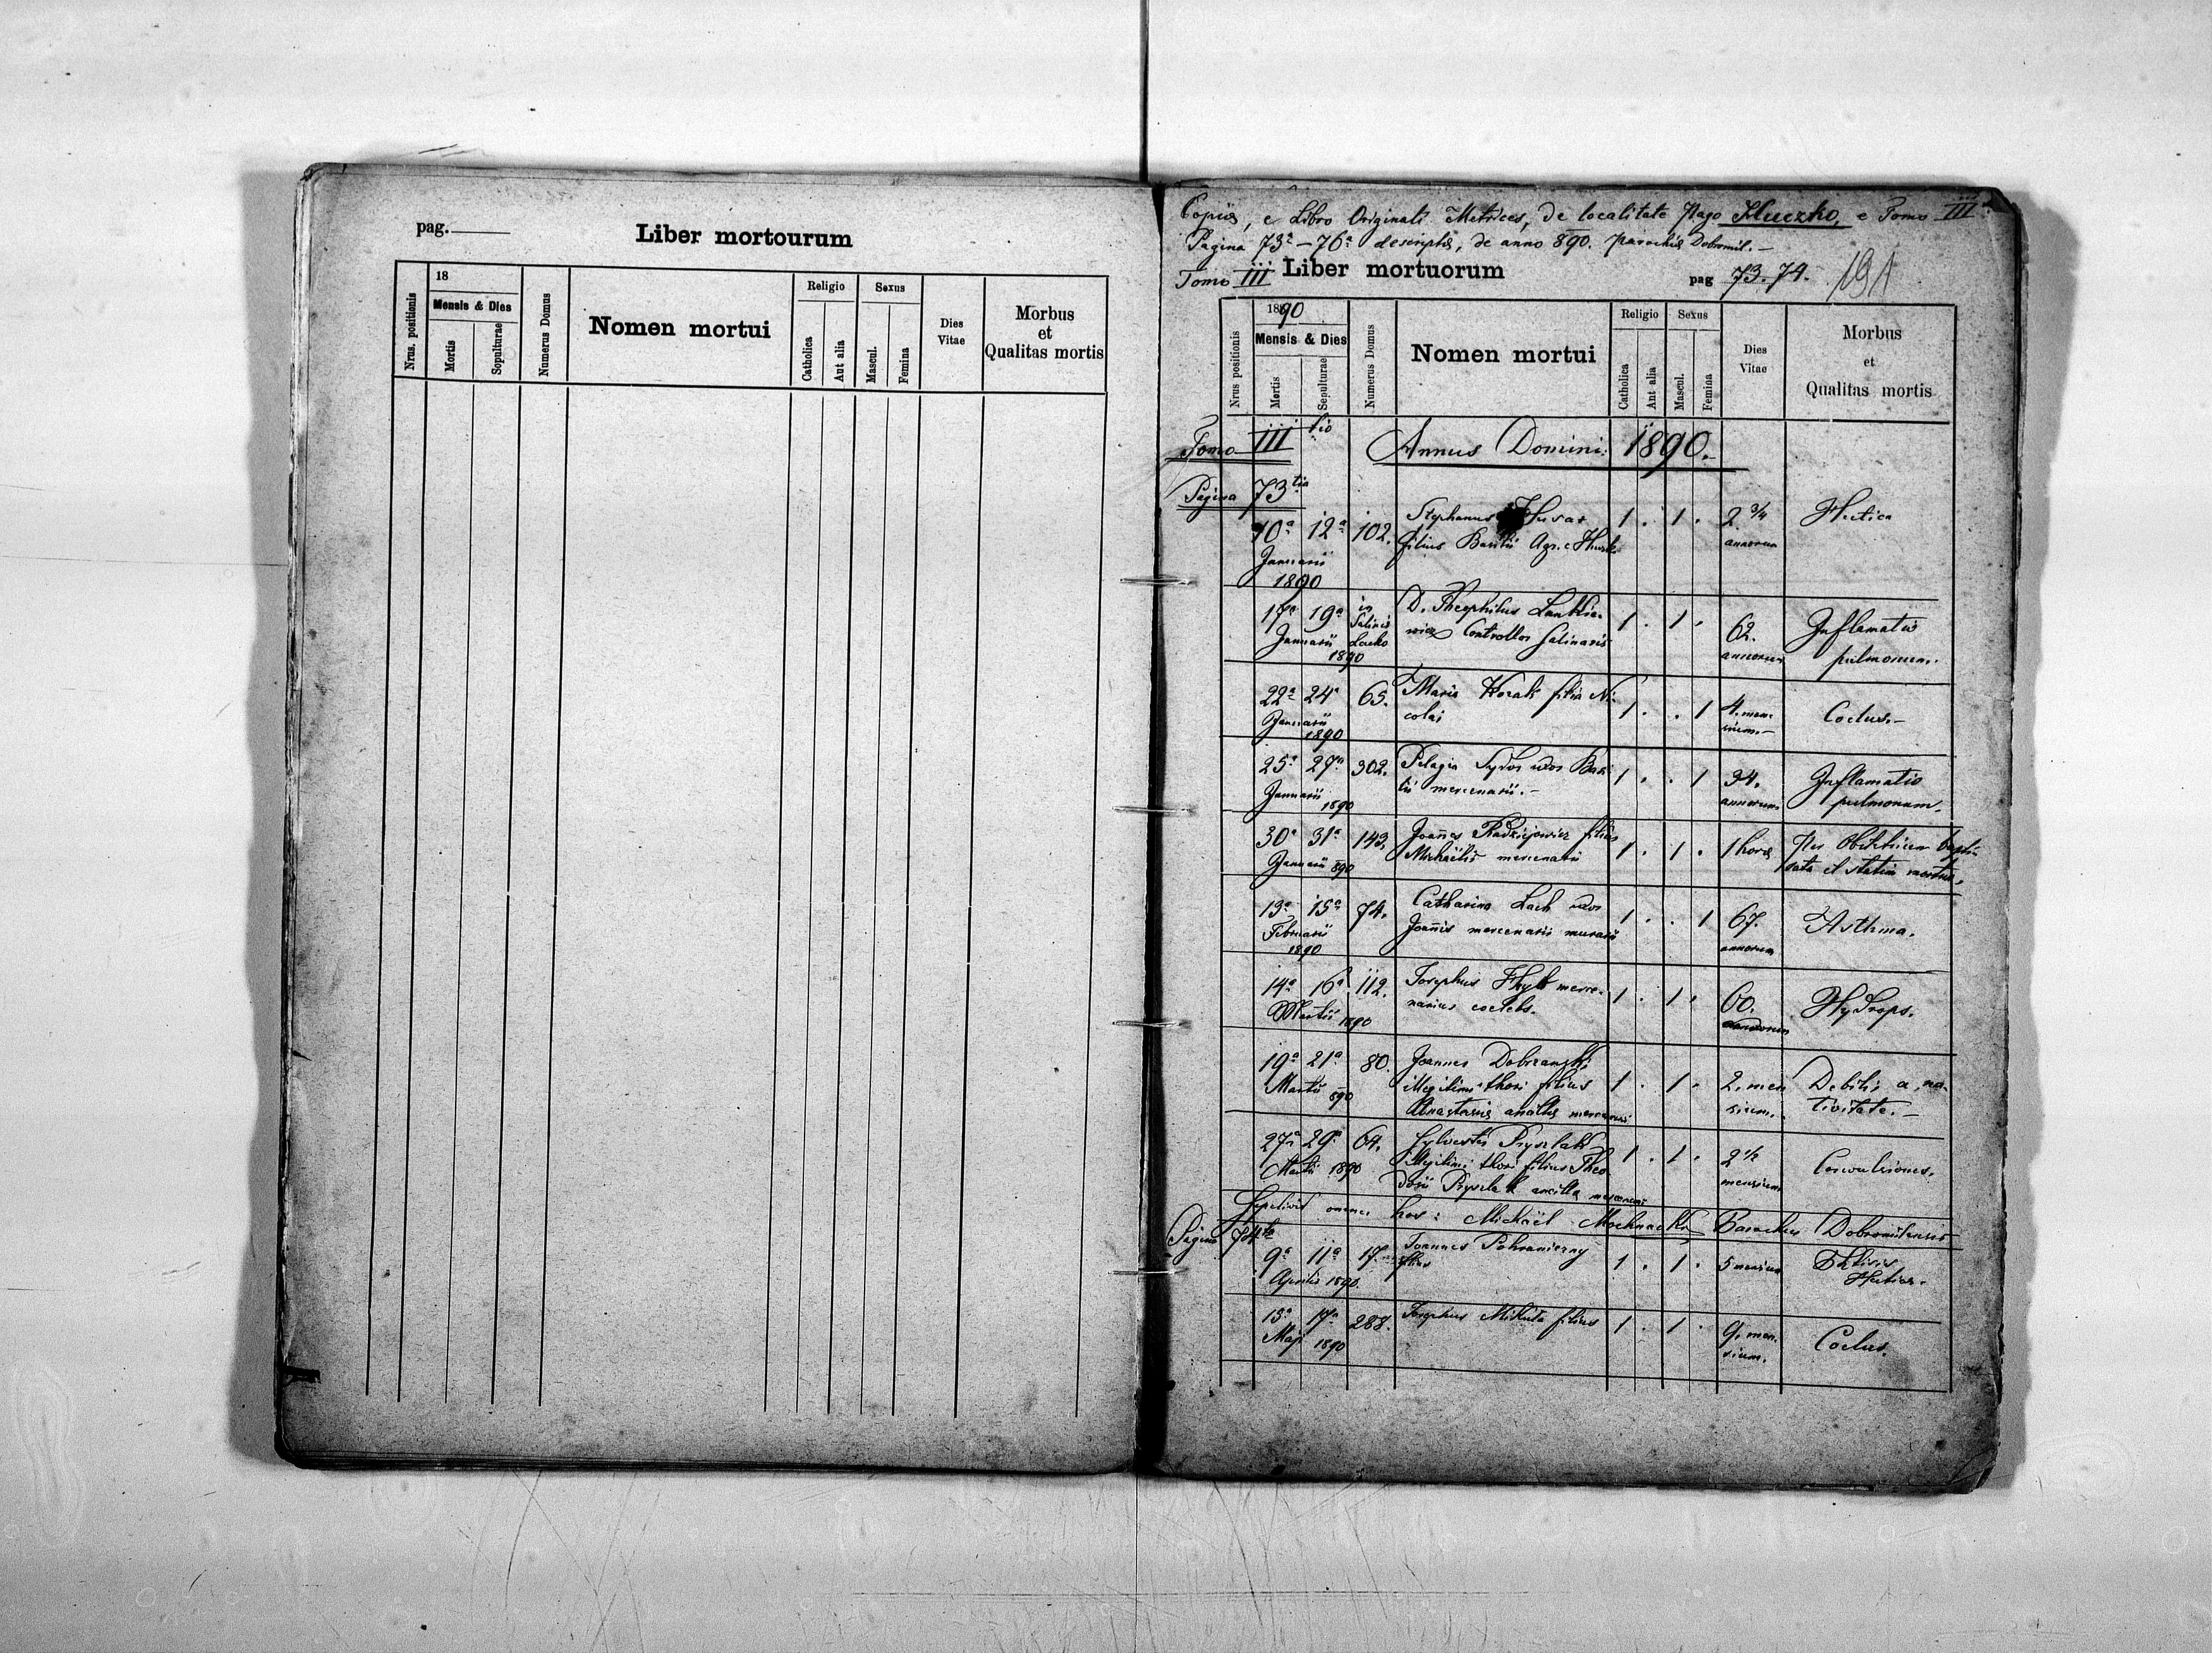 pag.
Liber mortourum
Nrus. positionis
18
Mensis & Dies
Mortis
Sopulturae
Numerus Domus
Nomen mortui
Religio
Catholica
Aut alia
Sexus
Mascul.
Femina
Dies
Vitae
Morbus
et
Qualitas mortis
Copia, e Libro Originali Metrices, de localitate Pago Huczko, e Tomo III
Pagina 73a – 76a descripta, de anno 890. parochia Dobromil. –
Tomo III Liber mortuorum pag 73. 74. 191
Nrus positionis
1890
Mensis & Dies
Mortis
Sepulturae
Numerus Domus
Nomen mortui
Religio
Catholica
Aut alia
Sexus
Mascul.
Femina
Dies
Vitae
Morbus
et
Qualitas mortis
Tomo III tio Annus Domini 1890. –
Pagina 73 tia
10a 12a 102. Stephanus Husar 1 . 1 . 2 3/4 Hectica
filius Basilii Agr. annorum
Januarii
1890
17a 19a in Salinis Lacko D. Theophilus 1 . 1 . 62. Inflamatio
Januarii Controllor Salinaris annorum pulmonum.
1890
22a 24a 65. Maria Kozak filia Ni- 1 . . 1 4. men-
Januarii colai sium. –
1890
25a 27a 302. Pelagia Sydor uxor Basi 1 . . 1 34. Inflamatio
Januarii lii mercenarii. – annorum pulmonum.
1890
30a 31a 143. Joannes Radziejowicz filius 1 . 1 . 1 hora Per Obstetricem bapti
Januarii 890 Michaëlis mercenarii sata et statim mortua.
13a 15a 74. Catharina Lach uxor 1 . . 1 67. Asthma.
Februarii Joannis mercenarii murarii annorum
1890
14a 16a 112. Josephus merce- 1 . 1 . 60. Hydrops.
Martii 1890 narius coelebs. annorum
19a 21a 80. Joannes Dobrzanski 1 . 1 . 2. men Debilis a na-
Martii 890 illegitimi thori filius sium. tivitate. –
Anastasia ancilla
27a 29a 64. Sylvester Pryszlak 1 . 1 . 2 1/2 Convulsiones.
Martii 1890 illegitimi thori filius Theo mensium
dosii Pryszlak ancilla
Sepelivit omnes hos: Michaël Mochnacki Parochus Dobromilensis
Pagina 74ta
9a 11a 17. Joannes Pohraniczny 1 . 1 . 5 mensium
Aprilis 1890. filius
15a 17a 288. Josephus Mikula filius 1 . 1 . 9. men-
Maji 1890 sium.